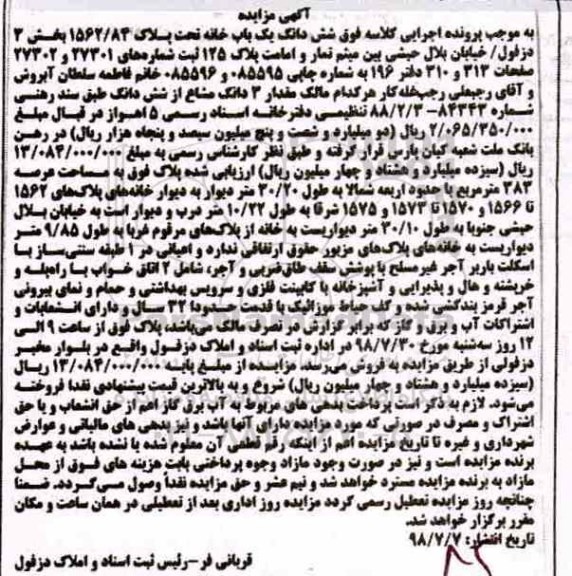 آگهی مزایده
به موجب پرونده اجرایی کلاسه فوق شش دانگ یک باب خانه تحت پلاک ۱۵۶۲/۸۴ بخش ۳
دزفول/ خیابان بلال حبشی بین میثم تمار و امامت پلاک ۱۲۵ ثبت شماره‌های ۲۷۳۰۱ و ۲۷۳۰۲
صفحات ۳۱۳ و ۳۱۰ دفتر ۱۹۶ به شماره چاپی ۰۸۵۵۹۵ و ۰۸۵۵۹۶ خانم فاطمه سلطان آبروش
و آقای رجبعلی رجب‌خله‌کار هرکدام مالک مقدار ۳ دانگ مشاع از شش دانگ طبق سند رهنی
شماره ۸۴۳۴۳- ۸۸/۲/۳ تنظیمی دفترخانه اسناد رسمی ۵ اهواز در قبال مبلغ
۲/۰۶۵/۳۵۰/۰۰۰ ریال (دو میلیارد و شصت و پنج میلیون سیصد و پنجاه هزار ریال) در رهن
بانک ملت شعبه کیان پارس قرار گرفته و طبق نظر کارشناس رسمی به مبلغ ۱۳/۰۸۴/۰۰۰/۰۰۰
ریال (سیزده میلیارد و هشتاد و چهار میلیون ریال) ارزیابی شده پلاک فوق به مساحت عرصه
۲۸۳ مترمربع با حدود اربعه شمالا به طول ۳۰/۲۰ متر دیوار به دیوار خانه‌های پلاک‌های ۱۵۶۲
تا ۱۵۶۶ و ۱۵۷۰ تا ۱۵۷۳ و ۱۵۷۵ شرقا به طول ۱۰/۲۲ متر درب و دیوار است به خیابان بلال
حبشی جنوبا به طول ۳۰/۱۰ متر دیواریست به خانه از پلاک‌های مرقوم غربا به طول ۹/۸۵ متر
دیواریست به خانه‌های پلاک‌های مزبور حقوق ارتفاقی ندارد و اعیانی در ۱ طبقه سنتی‌ساز با
اسکلت باربر آجر غیرمسلح با پوشش سقف طاق‌ضربی و آجر، شامل ۲ اتاق خواب با راه‌پله و
خرپشته و هال و پذیرایی و آشپزخانه با کابینت فلزی و سرویس بهداشتی و حمام و نمای بیرونی
آجر قرمز بندکشی شده و کف حیاط موزائیک با قدمت حدودا ۳۲ سال و دارای انشعابات و
اشتراکات آب و برق و گاز که برابر گزارش در تصرف مالک می‌باشد، پلاک فوق از ساعت ۹ الی
۱۲ روز سه‌شنبه مورخ ۹۸/۷/۳۰ در اداره ثبت اسناد و املاک دزفول واقع در بلوار مخبر
دزفولی از طریق مزایده به فروش می‌رسد. مزایده از مبلغ پایه ۱۳/۰۸۴/۰۰۰/۰۰۰ ریال
(سیزده میلیارد و هشتاد و چهار میلیون ریال) شروع و به بالاترین قیمت پیشنهادی نقدا فروخته
می‌شود. لازم به ذکر است پرداخت بدهی های مربوط به آب برق گاز اعم از حق انشعاب و یا حق
اشتراک و مصرف در صورتی که مورد مزایده دارای آنها باشد و نیز بدهی های مالیاتی و عوارض
شهرداری و غیره تا تاریخ مزایده اعم از اینکه رقم قطعی آن معلوم شده یا نشده باشد به عهده
برنده مزایده است و نیز در صورت وجود مازاد وجوه پرداختی بابت هزینه های فوق از محل
مازاد به برنده مزایده مسترد خواهد شد و نیم عشر و حق مزایده نقدا وصول می‌گردد. ضمنا
چنانچه روز مزایده تعطیل رسمی گردد مزایده روز اداری بعد از تعطیلی در همان ساعت و مکان
مقرر برگزار خواهد شد.
تاریخ انتشار: ۹۸/۷/۷
قربانی فر –رئیس ثبت اسناد و املاک دزفول